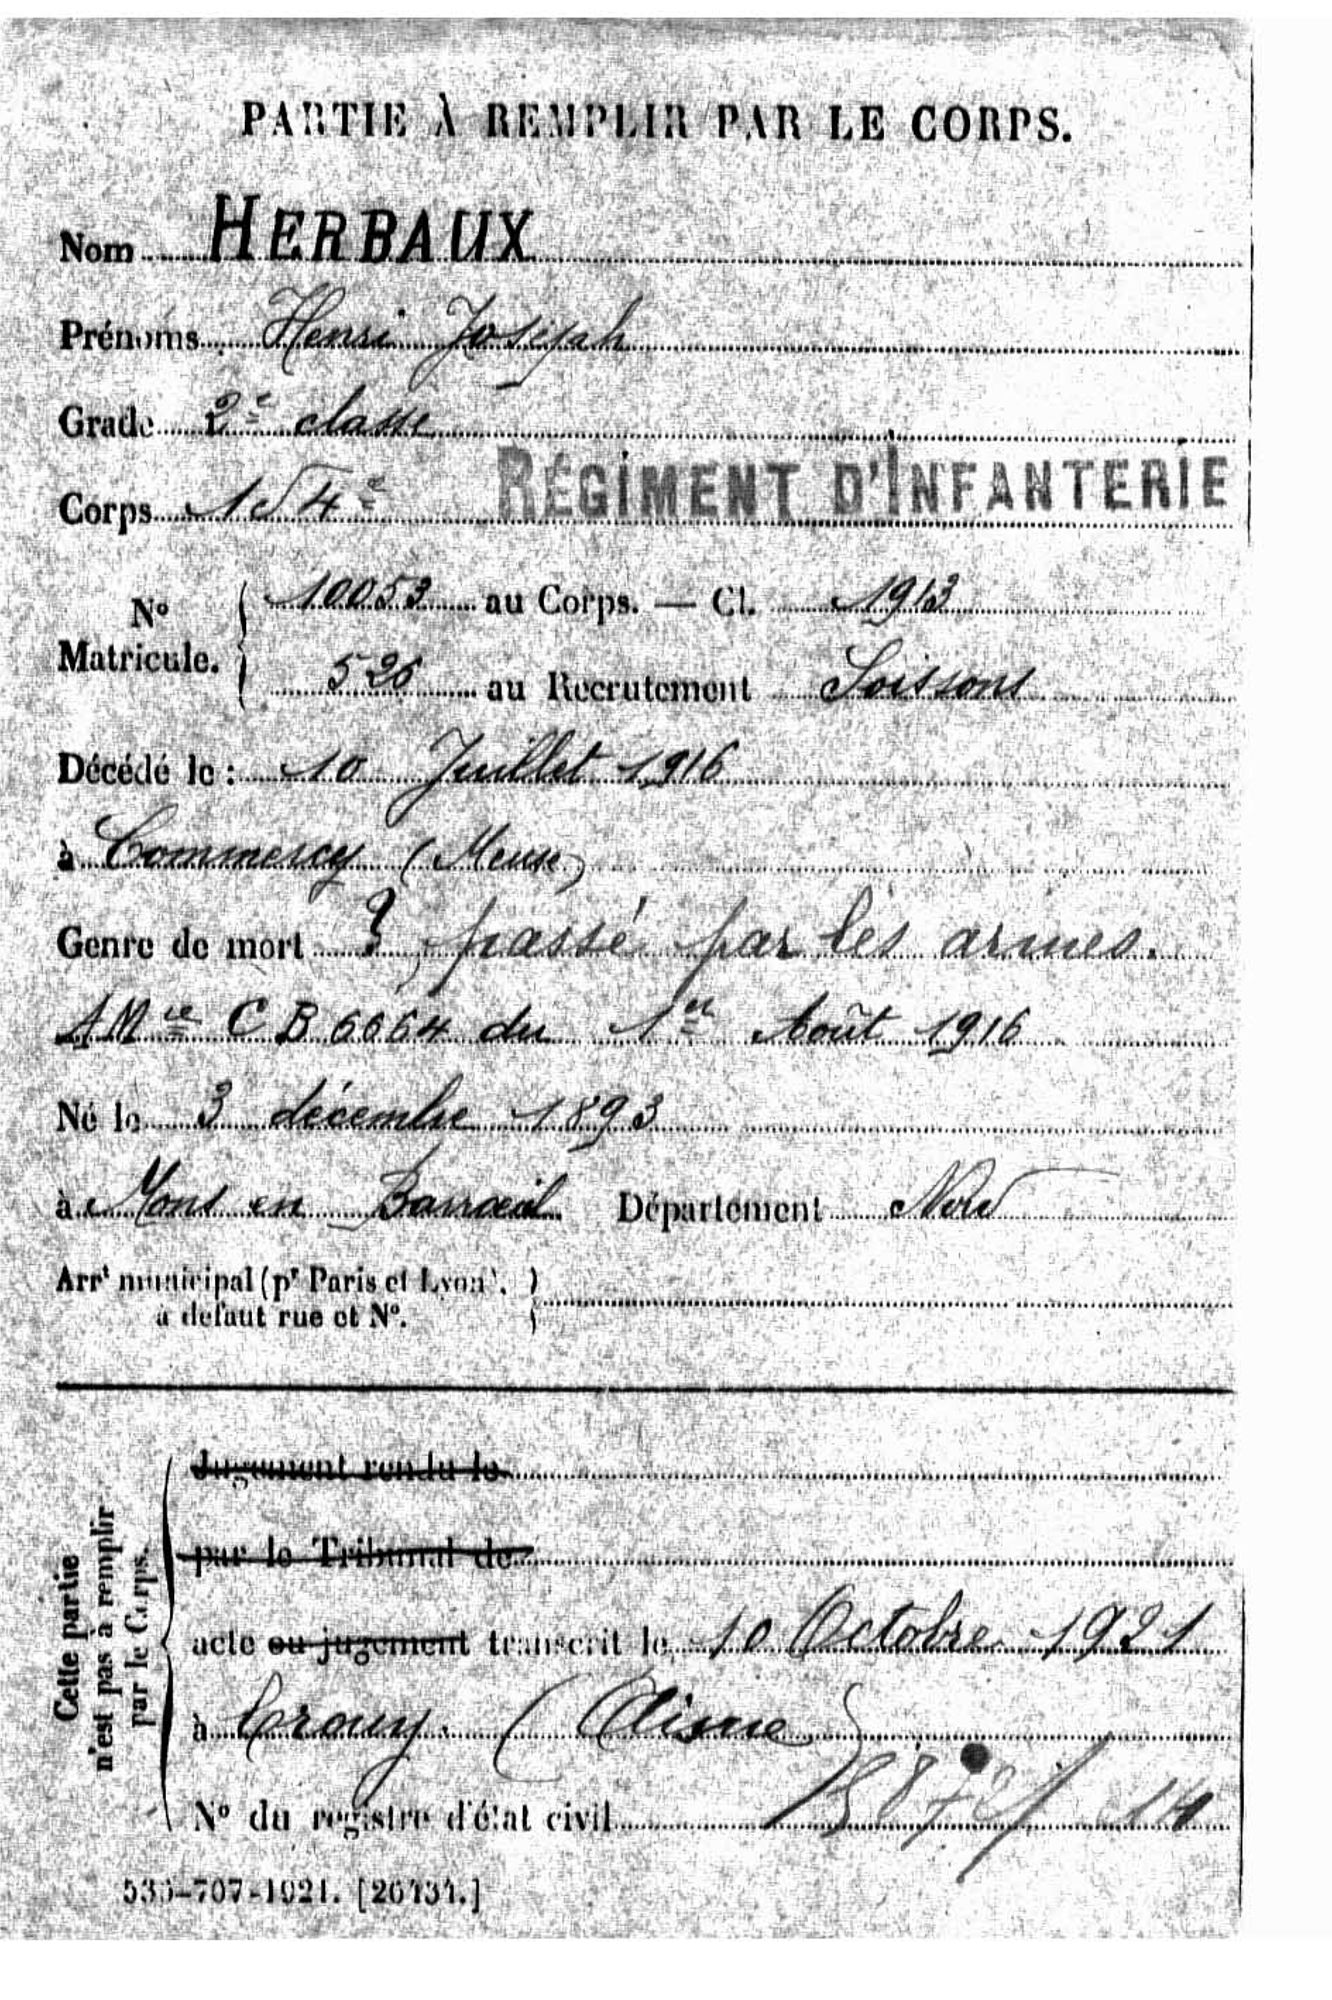 PARTIE À REMPLIR PAR LE CORPS.
Nom HERBAUX
Prénoms Henri Joseph
Grade 2e classe
Corps 154e RÉGIMENT D'INFANTERIE
No Matricule. { 10053 au Corps. — Cl. 1913
526 au Recrutement Soissons
Décédé le : 10 Juillet 1916
à Commercy (Meuse)
Genre de mort ? passé par les armes.
CB 6664 du 1er Août 1916
Né le 3 décembre 1893
à Mons en Baroeil. Département Nord
Arrt municipal (pr Paris et Lyon), }
à défaut rue et No.
Cette partie
n'est pas à remplir
par le Corps.
Jugement rendu le
par le Tribunal de
acte ou jugement transcrit le 10 Octobre 1921
à Crouy. (Aisne)
No du registre d'état civil
-707-1921. [26434.]